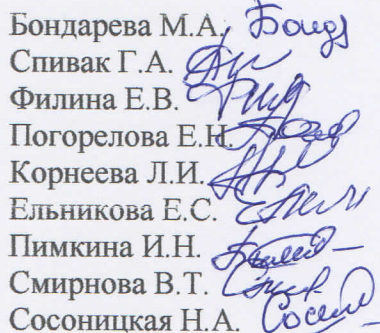 Бондарева М.А.
Спивак Г.А.
Филина Е.В.
Погорелова Е.Н.
Корнеева Л.И.
Ельникова Е.С.
Пимкина И.Н.
Смирнова В.Т.
Сосоницкая Н.А.